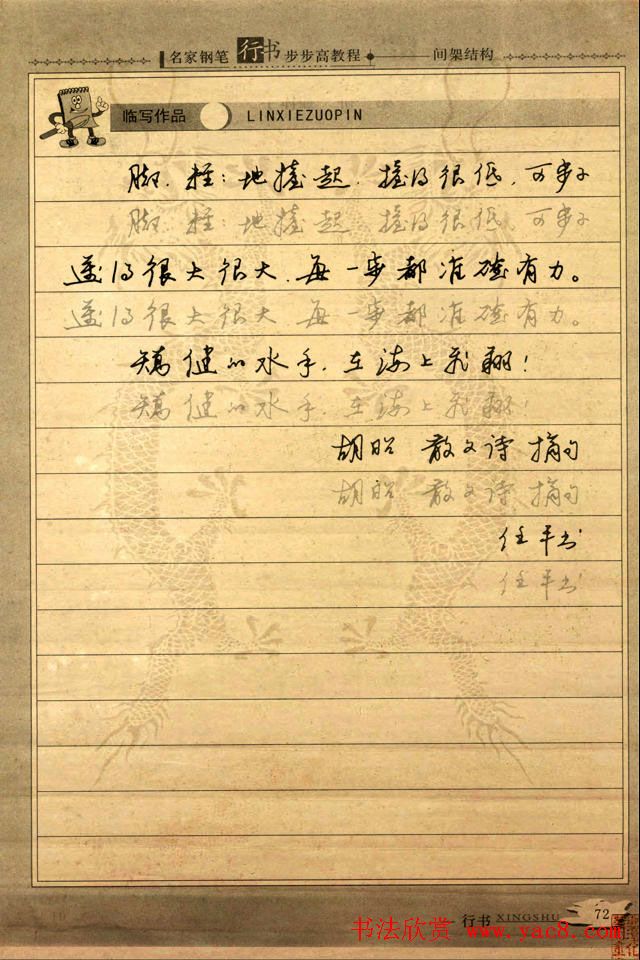 名家钢笔 行书 步步高教程 间架结构
临写作品 LINXIEZUOPIN
脚，轻轻地擡起，擡得很低，可步子
脚，轻轻地擡起，擡得很低，可步子
邁得很大很大，每一步都准確有力。
邁得很大很大，每一步都准確有力。
矫健的水手，在海上飞翔！
矫健的水手，在海上飞翔！
胡昭 散文诗摘句
胡昭 散文诗摘句
任平书
任平书
行书 XINGSHU 72
书法欣赏 www.yac8.com